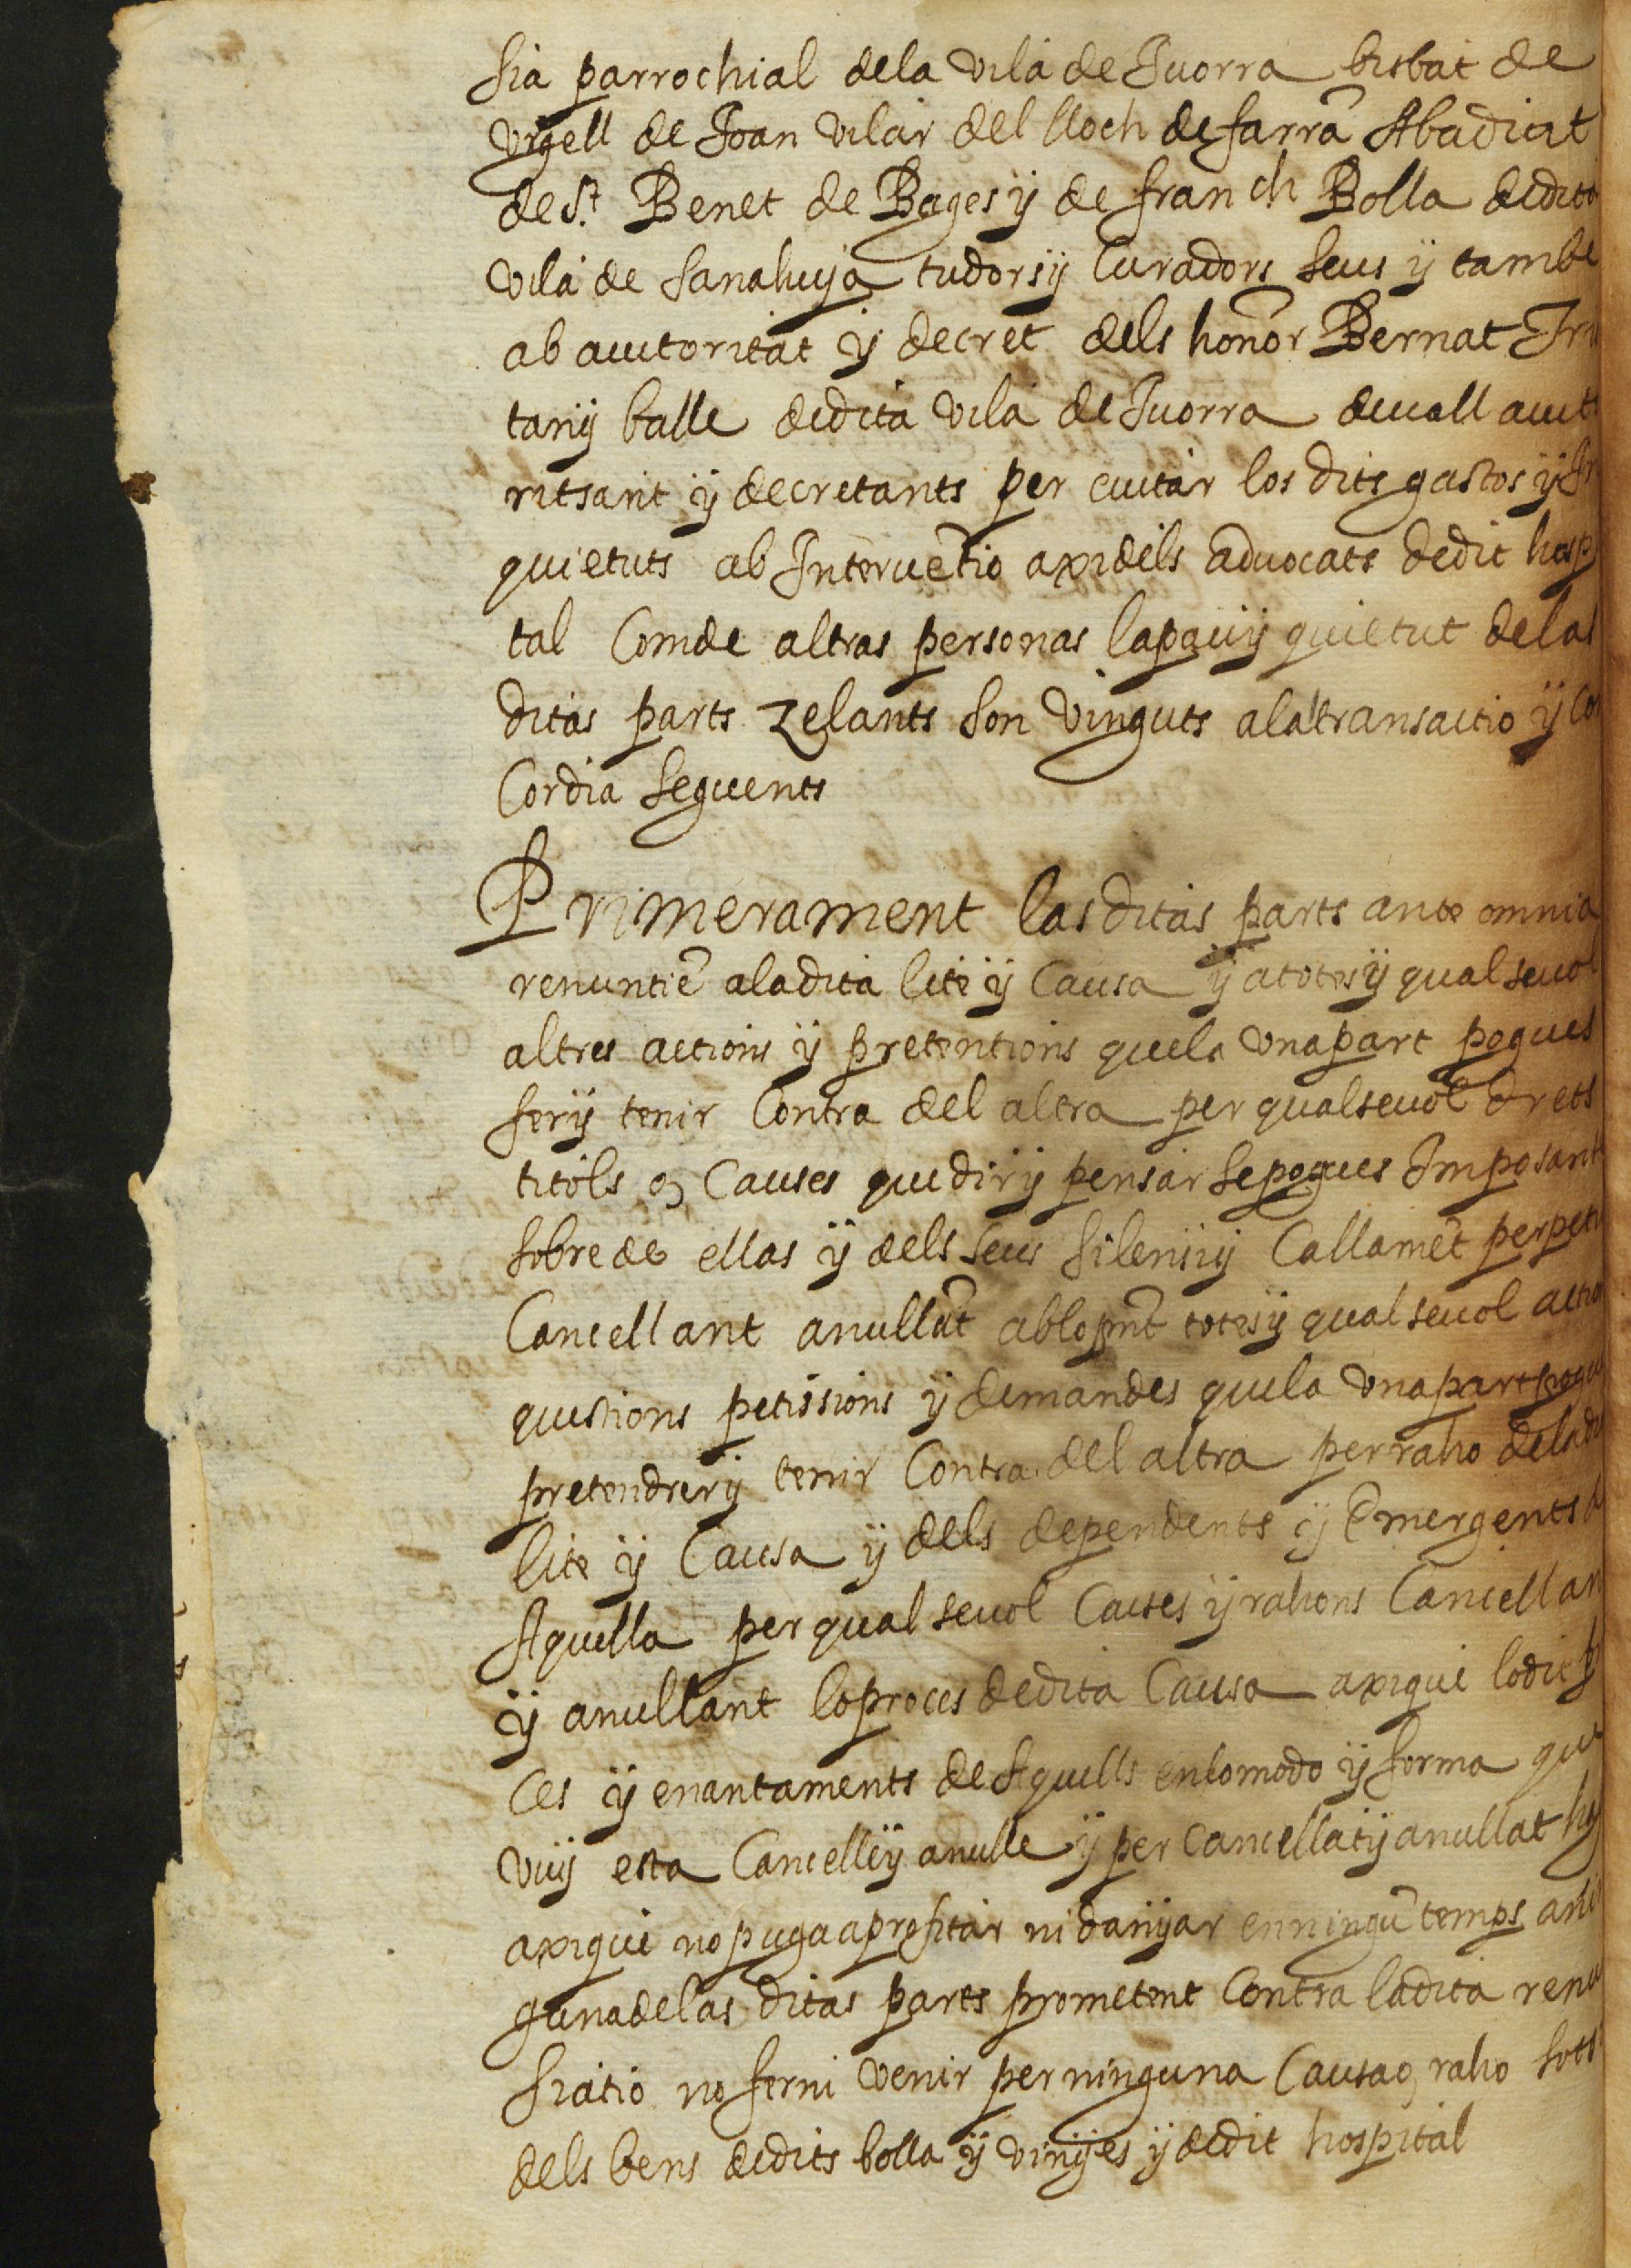 sia parrochial dela vila de Iuorra bisbat de
vrgell de Joan vilar del lloch de farrā Abadiat
de St. Benet de Bages ÿ de franch Bolla dedita
vila de Sanahuja tudors ÿ Curadors seus ÿ tambe
ab auctoritat ÿ decret dels honōr Bernat
tanÿ balle dedita vila de Iuorra deuall
ritsant ÿ decretants per euitar los dits gastos ÿ
quietuts ab Interuētio axi dels aduocats dedit hosp
tal Com de altras personas la pau ÿ quietut de las
ditas parts zelants son vinguts ala transactio ÿ Con
Cordia seguents
Primerament las ditas parts ante omnia
renuntiē ala dita lite ÿ Causa ÿ a totes ÿ qualseuol
altres actions ÿ pretentions que la vna part pogues
fer ÿ tenir Contra del altra per qualseuol drets
titols o, Causes que dir ÿ pensar se pogues Imposant
sobre de ellas ÿ dels seus silensi ÿ Callamēt perpetu
Cancellant anullāt ab lo pn̄t totes ÿ qualseuol actio
questions petissions ÿ demandes que la vna part pogu
pretendrer ÿ tenir Contra del altra per raho de la di
lite ÿ Causa ÿ dels dependents ÿ Emergents d
Aquella per qualseuol Causes ÿ rahons Cancellan
ÿ anullant lo proces dedita Causa axi que lo dit
Ces ÿ enantaments de Aquells en lo modo ÿ forma que
vuÿ esta Cancell ÿ anulle ÿ per Cancellat ÿ anullat
axi que no puga aprofitar ni danÿar en ningū temps
guna de las ditas parts prometent Contra la dita renu
siatio no fer ni venir per ninguna Causa o, raho sots
dels bens dedits bolla ÿ vinÿes ÿ dedit hospital